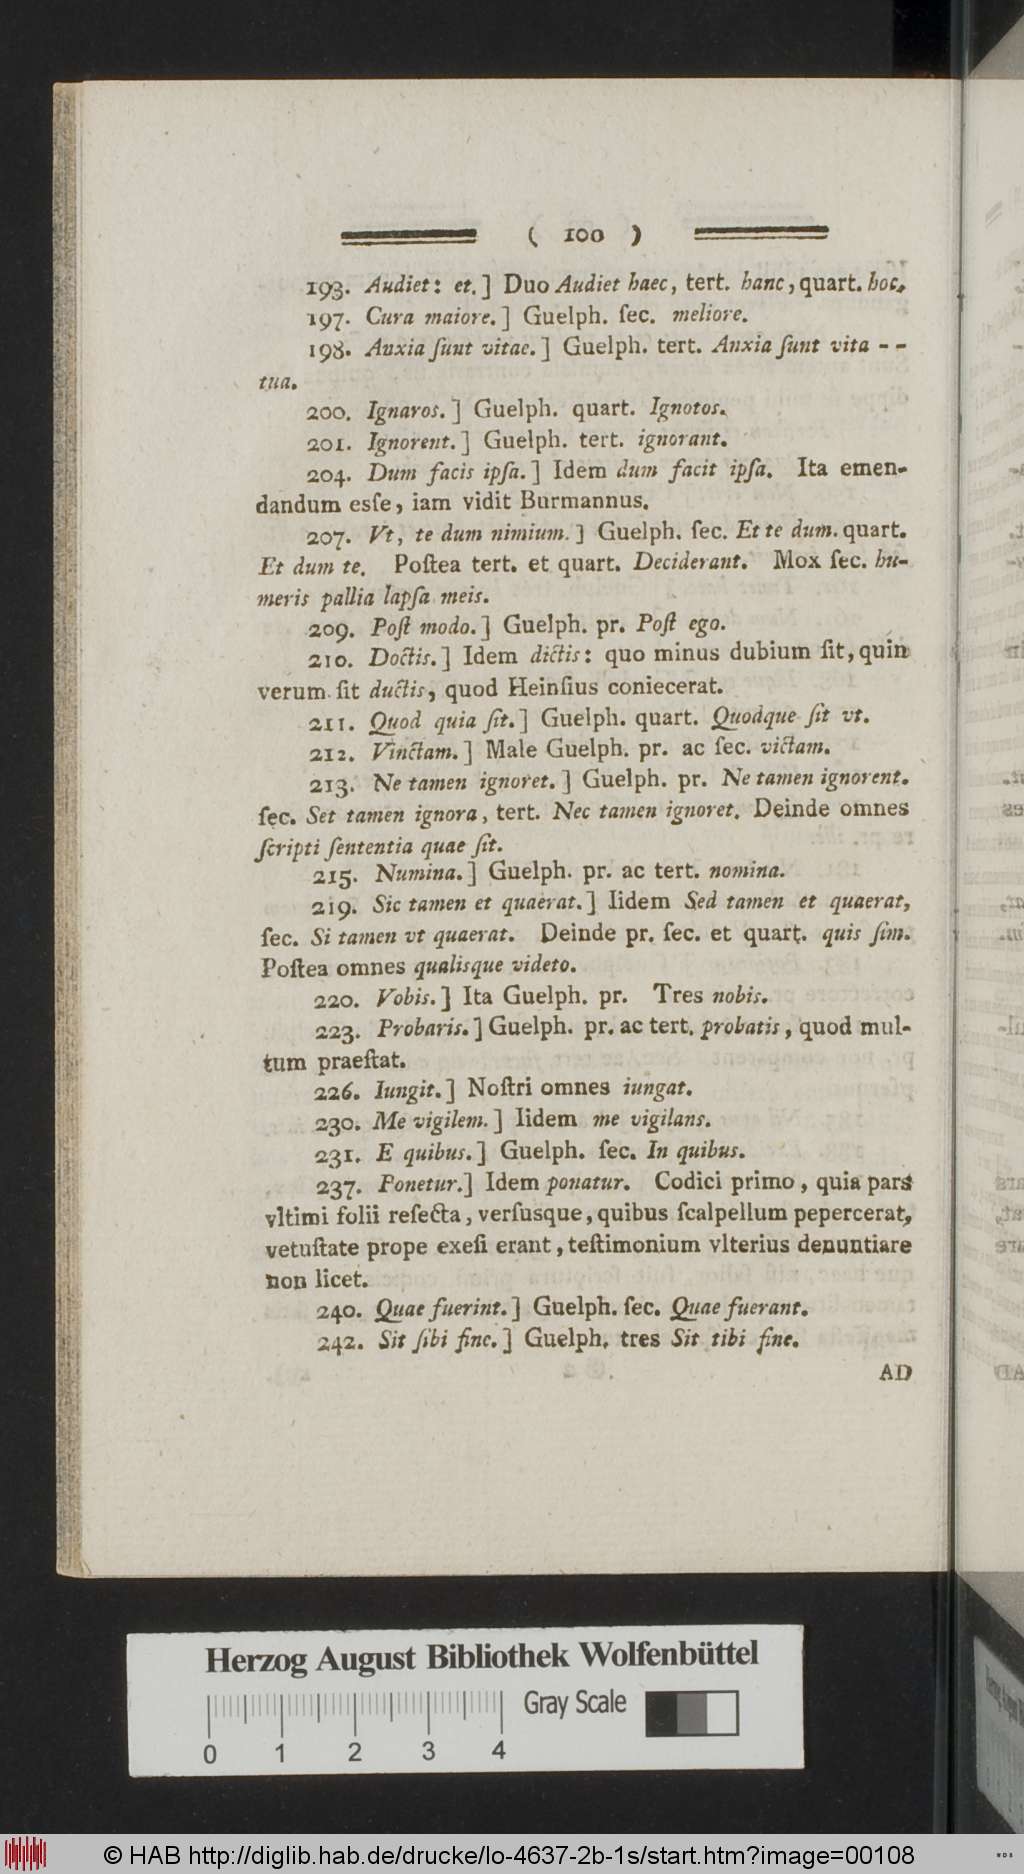 ( 100 )
193. Audiet: et.] Duo Audiet haec, tert. hanc, quart. hoc.
197. Cura maiore.] Guelph. ſec. meliore.
198. Anxia ſunt vitae.] Guelph. tert. Anxia ſunt vita - -
tua.
200. Ignaros.] Guelph. quart. Ignotos.
201. Ignorent.] Guelph. tert. ignorant.
204. Dum facis ipſa.] Idem dum facit ipſa. Ita emen-
dandum esſe, iam vidit Burmannus.
207. Vt, te dum nimium.] Guelph. ſec. Et te dum. quart.
Et dum te. Poſtea tert. et quart. Deciderant. Mox ſec. hu-
meris pallia lapſa meis.
209. Poſt modo.] Guelph. pr. Poſt ego.
210. Doctis.] Idem dictis: quo minus dubium ſit, quin
verum ſit ductis, quod Heinſius coniecerat.
211. Quod quia ſit.] Guelph. quart. Quodque ſit vt.
212. Vinctam.] Male Guelph. pr. ac ſec. victam.
213. Ne tamen ignoret.] Guelph. pr. Ne tamen ignorent.
ſec. Set tamen ignora, tert. Nec tamen ignoret. Deinde omnes
ſcripti ſententia quae ſit.
215. Numina.] Guelph. pr. ac tert. nomina.
219. Sic tamen et quaerat.] Iidem Sed tamen et quaerat,
ſec. Si tamen vt quaerat. Deinde pr. ſec. et quart. quis ſim.
Poſtea omnes qualisque videto.
220. Vobis.] Ita Guelph. pr. Tres nobis.
223. Probaris.] Guelph. pr. ac tert. probatis, quod mul-
tum praeſtat.
226. Iungit.] Noſtri omnes iungat.
230. Me vigilem.] Iidem me vigilans.
231. E quibus.] Guelph. ſec. In quibus.
237. Ponetur.] Idem ponatur. Codici primo, quia pars
vltimi folii reſecta, verſusque, quibus ſcalpellum pepercerat,
vetuſtate prope exeſi erant, teſtimonium vlterius denuntiare
non licet.
240. Quae fuerint.] Guelph. ſec. Quae fuerant.
242. Sit ſibi fine.] Guelph. tres Sit tibi fine.
AD
Herzog August Bibliothek Wolfenbüttel
Gray Scale
0 1 2 3 4
© HAB http://diglib.hab.de/drucke/lo-4637-2b-1s/start.htm?image=00108